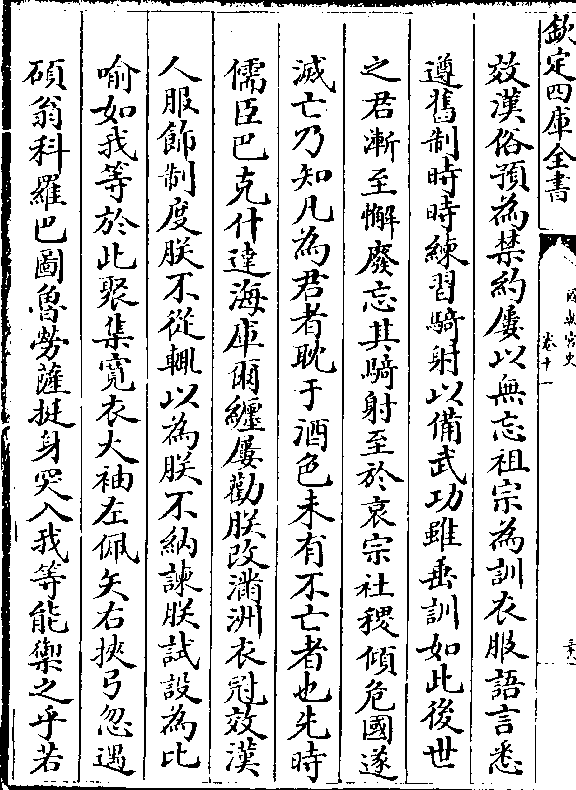 欽定四庫全書
國朝宮史
卷十一
效漢俗預為禁約屢以無忘祖宗為訓衣服語言悉
遵舊制時時練習騎射以備武功雖垂訓如此後世
之君漸至懈廢忘其騎射至於哀宗社稷傾危國遂
滅亡乃知凡為君者耽于酒色未有不亡者也先時
儒臣巴克什達海庫爾纏屢勸朕改滿洲衣冠效漢
人服飾制度朕不從輒以為朕不納諫朕試設為比
喻如我等於此聚集寛衣大袖左佩矢右挾弓忽遇
碩翁科羅巴圖魯勞薩挺身突入我等能禦之乎若